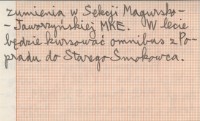 zumienia w Sekcji Magursko-
- Jaworzyńskiej MKE. W lecie
będzie kursować omnibus z Po-
pradu do Starego Smokowca.